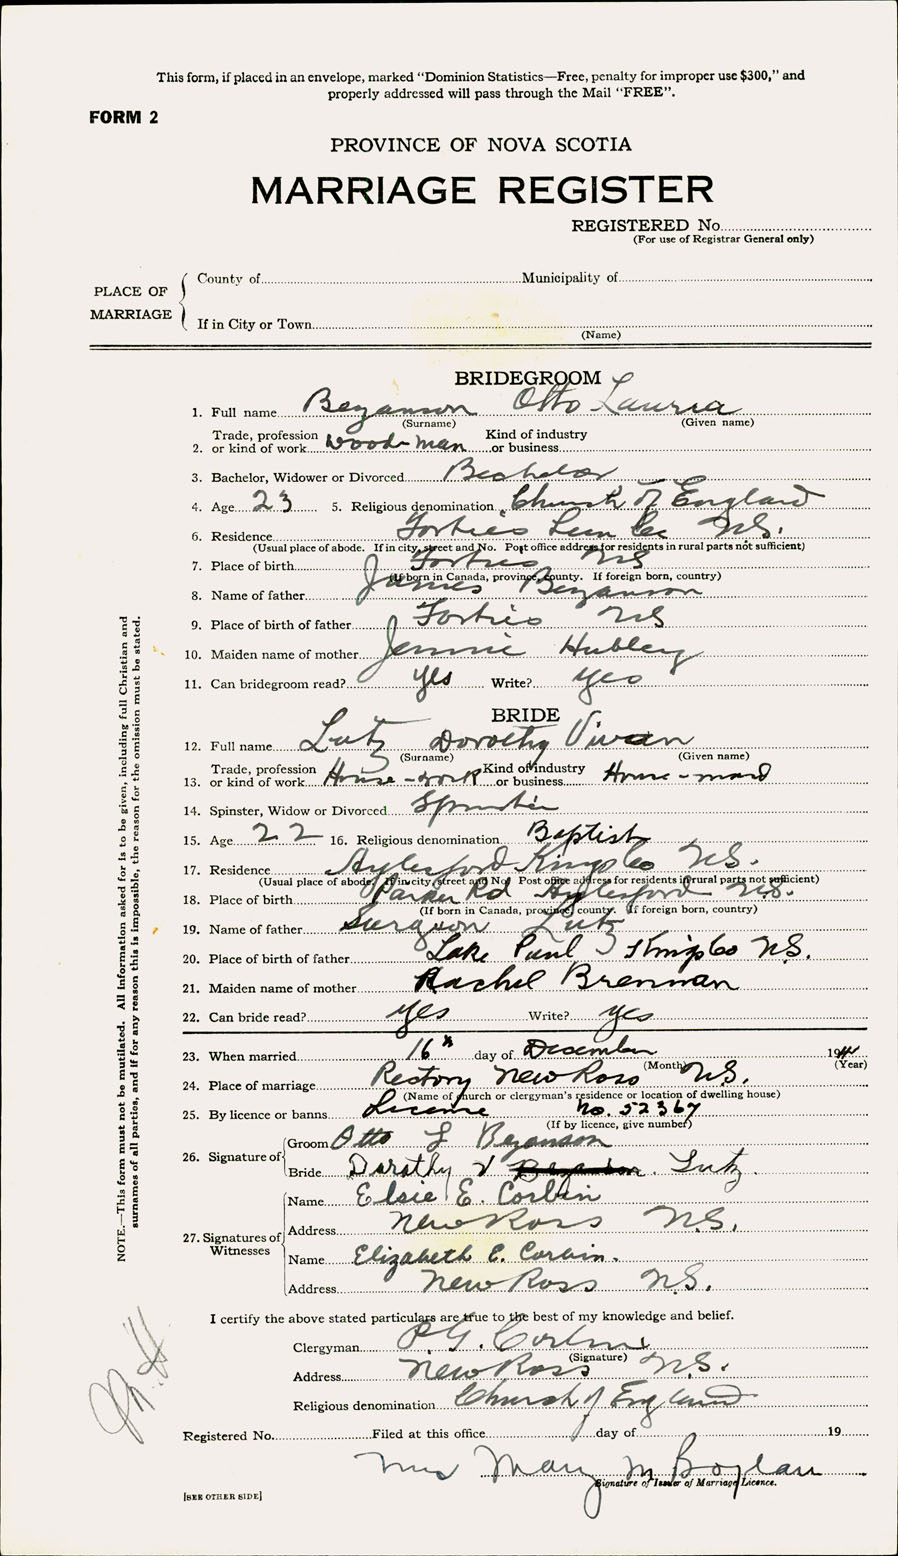 This form, if placed in an envelope, marked "Dominion Statistics—Free, penalty for improper use $300," and
properly addressed will pass through the Mail "FREE".
FORM 2
PROVINCE OF NOVA SCOTIA
MARRIAGE REGISTER
REGISTERED No.
(For use of Registrar General only)
PLACE OF MARRIAGE
County of Municipality of
If in City or Town
(Name)
BRIDEGROOM
1. Full name Bezanson Otto Lauria
(Surname) (Given name)
2. Trade, profession or kind of work Woods-man Kind of industry or business
3. Bachelor, Widower or Divorced Bachelor
4. Age 23 5. Religious denomination Church of England
6. Residence Forties Lun Co N.S.
(Usual place of abode. If in city, street and No. Post office address for residents in rural parts not sufficient)
7. Place of birth Forties NS
(If born in Canada, province, county. If foreign born, country)
8. Name of father James Bezanson
9. Place of birth of father Forties NS
10. Maiden name of mother Jennie Hubley
11. Can bridegroom read? Yes Write? Yes
BRIDE
12. Full name Lutz Dorothy Vivian
(Surname) (Given name)
13. Trade, profession or kind of work House-work Kind of industry or business House-maid
14. Spinster, Widow or Divorced Spinster
15. Age 22 16. Religious denomination Baptist
17. Residence Aylesford Kings Co N.S.
(Usual place of abode. If in city, street and No. Post office address for residents in rural parts not sufficient)
18. Place of birth Parker Rd Aylesford N.S.
(If born in Canada, province, county. If foreign born, country)
19. Name of father Lutz
20. Place of birth of father Lake Paul Kings Co N.S.
21. Maiden name of mother Rachel Brennan
22. Can bride read? Yes Write? Yes
23. When married 16th day of December 1944
(Month) (Year)
24. Place of marriage Rectory New Ross N.S.
(Name of church or clergyman's residence or location of dwelling house)
25. By licence or banns License No. 52367
(If by licence, give number)
26. Signature of
Groom Otto L Bezanson
Bride Dorothy V Lutz
27. Signatures of Witnesses
Name Elsie E. Corbin
Address New Ross N.S.
Name Elizabeth E. Corbin.
Address New Ross N.S.
I certify the above stated particulars are true to the best of my knowledge and belief.
Clergyman Corbin
(Signature)
Address New Ross N.S.
Religious denomination Church of England
Registered No. Filed at this office day of 19
Mrs Mary M Boylan
Signature of Issuer of Marriage Licence.
[SEE OTHER SIDE]
NOTE.—This form must not be mutilated. All Information asked for is to be given, including full Christian and
surnames of all parties, and if for any reason this is impossible, the reason for the omission must be stated.